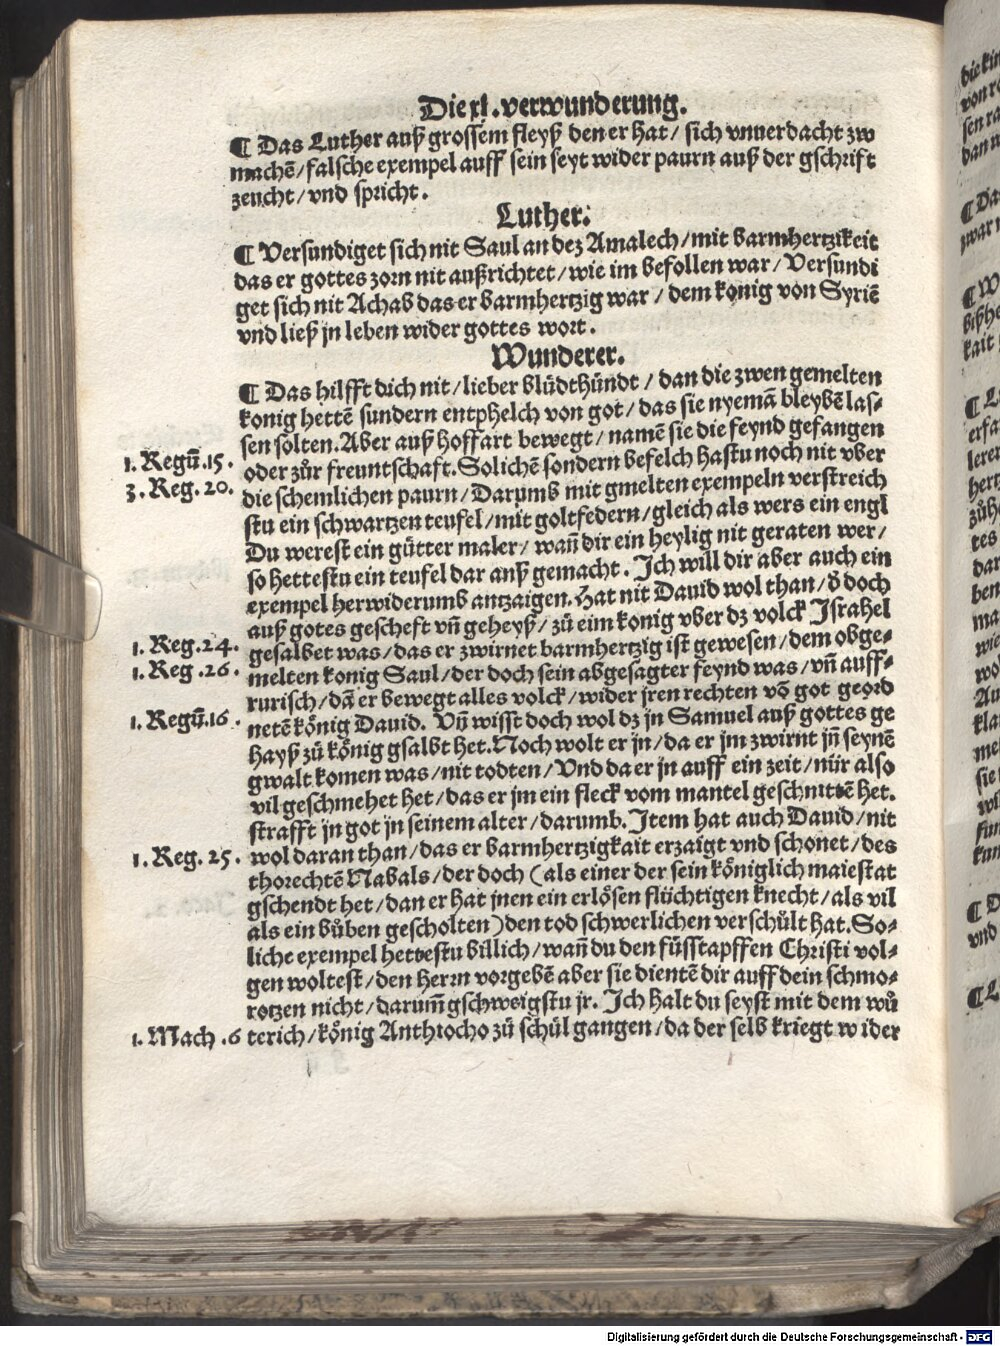 Die xl. verwunderung.
¶ Das Luther auß grossem fleyß den er hat/ sich vnuerdacht zw
machē/ falsche exempel auff sein seyt wider paurn auß der gschrift
zeucht/ vnd spricht.
Luther:
¶ Versundiget sich nit Saul an dez Amalech/ mit barmhertzikeit
das er gottes zorn nit außrichtet/ wie im befollen war/ Versundi
get sich nit Achab das er barmhertzig war/ dem konig von Syriē
vnd ließ jn leben wider gottes wort.
Wunderer.
¶ Das hilfft dich nit/ lieber blüdthündt/ dan die zwen gemelten
konig hettē sundern entphelch von got/ das sie nyemā bleybē las-
sen solten. Aber auß hoffart bewegt/ namē sie die feynd gefangen
1. Regū. 15. oder zůr freuntschaft. Solichē sondern befelch hastu noch nit vber
3. Reg. 20. die schemlichen paurn/ Darumb mit gmelten exempeln verstreich
stu ein schwartzen teufel/ mit goltfedern/ gleich als wers ein engl
Du werest ein gütter maler/ wañ dir ein heylig nit geraten wer/
so hettestu ein teufel dar auß gemacht. Ich will dir aber auch ein
exempel herwiderumb antzaigen. Hat nit Dauid wol than/ d̄ doch
auß gotes gescheft vñ geheyß/ zů eim konig vber dz volck Israhel
1. Reg. 24. gesalbet was/ das er zwirnet barmhertzig ist gewesen/ dem obge-
1. Reg. 26. melten konig Saul/ der doch sein abgesagter feynd was/ vñ auff-
rurisch/ dā er bewegt alles volck/ wider jren rechten vō got geord
1. Regū. 16. netē kőnig Dauid. Vñ wisst doch wol dz jn Samuel auß gottes ge
hayß zů kőnig gsalbt het. Noch wolt er jn/ da er jm zwirnt jñ seynē
gwalt komen was/ nit todten/ Vnd da er jn auff ein zeit/ nür also
vil geschmehet het/ das er jm ein fleck vom mantel geschnittē het.
strafft jn got jn seinem alter/ darumb. Item hat auch Dauid/ nit
1. Reg. 25. wol daran than/ das er barmhertzigkait erzaigt vnd schonet/ des
thorechtē Nabals/ der doch (als einer der sein kőniglich maiestat
gschendt het/ dan er hat jnen ein erlősen flüchtigen knecht/ als vil
als ein bůben gescholten) den tod schwerlichen verschült hat. So-
liche exempel hettestu billich/ wañ du den füsstapffen Christi vol-
gen woltest/ den herrn vorgebē aber sie dientē dir auff dein schmo-
rotzen nicht/ darum̄ gschweigstu jr. Ich halt du seyst mit dem wů
1. Mach. 6 terich/ kőnig Anthiocho zů schůl gangen/ da der selb kriegt wider
Digitalisierung gefördert durch die Deutsche Forschungsgemeinschaft - DFG